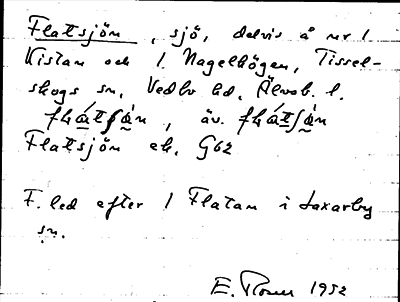 Flatsjön, sjö, delvis å nr 1
Kistan och 1 Nagelhögen, Tissel-
skogs sn, Vedbo hd, Älvsb. l.
, äv.
Flatsjön ek. G62
F. led efter 1 Flatan i Laxarby
sn.
E. 1952